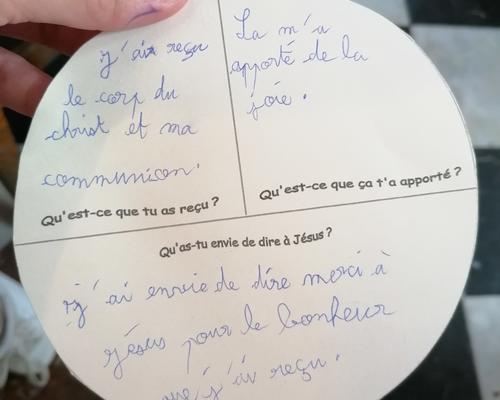 j'ai reçu
le corp du
christ et ma
communion.
Qu'est-ce que tu as reçu ?
La m'a
apporté de la
joie.
Qu'est-ce que ça t'a apporté ?
Qu'as-tu envie de dire à Jésus ?
j'ai envie de dire merci à
jésus pour le bonheur
que j'ai reçu.